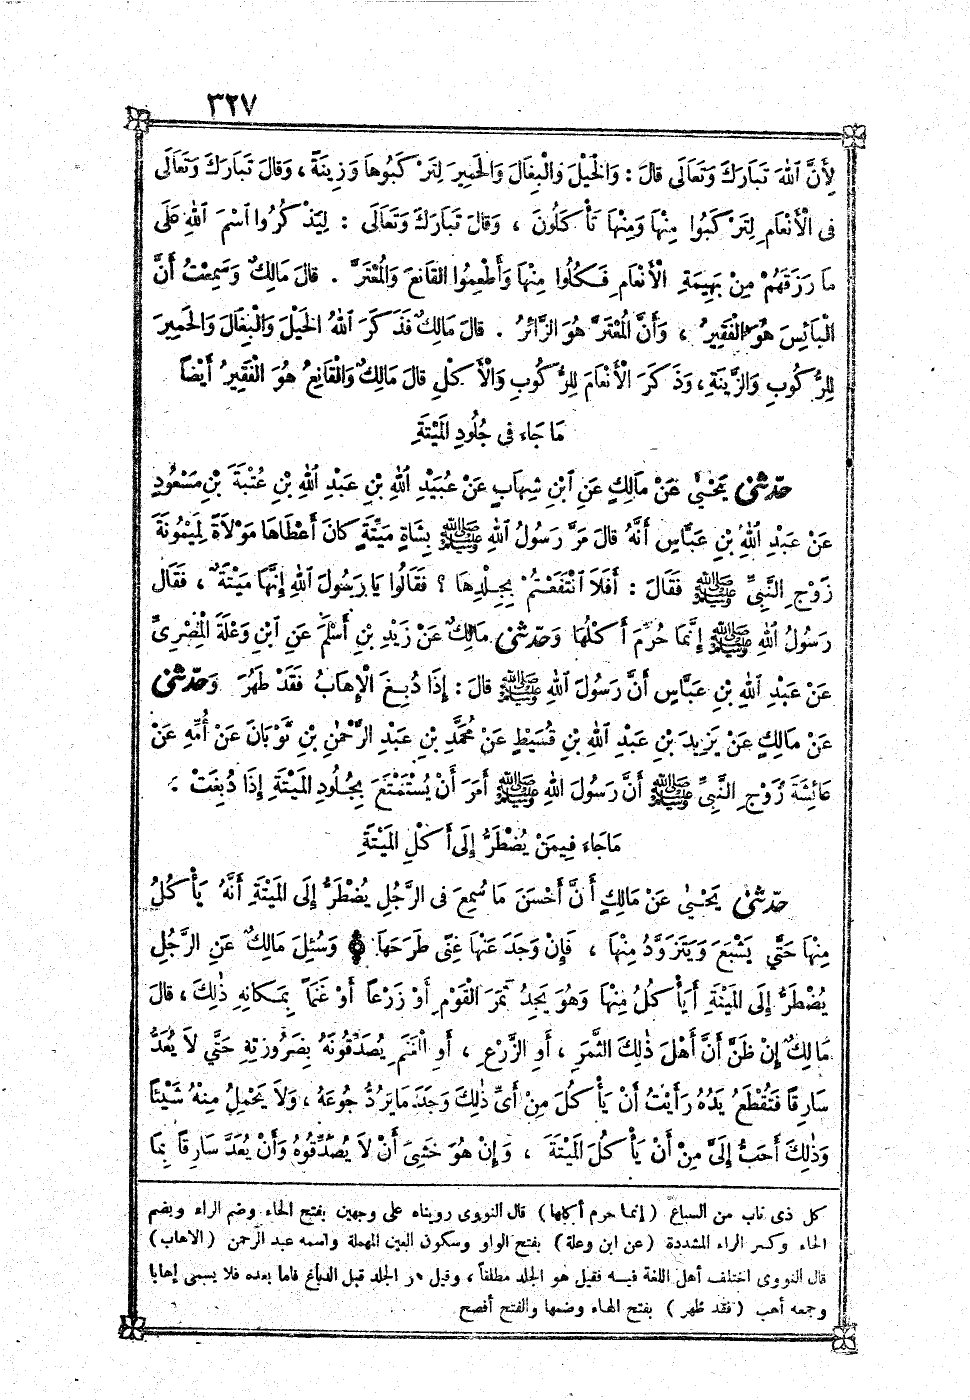 ٣٢٧
لِأَنَّ اللهَ تَبَارَكَ وَتَعَالَى قالَ : وَالْخَيْلَ وَالْبِغَالَ وَالْحَمِيرَ لِتَرْكَبُوهَا وَزِينَةً ، وَقالَ تَبَارَكَ وَتَعَالَى
فى الْأَنْعَامِ لِتَرْكَبُوا مِنْهَا وَمِنْهَا تَأْكُلُونَ ، وَقالَ تَبَارَكَ وَتَعَالَى : لِيَذْكُرُوا اسْمَ اللهِ عَلَى
ما رَزَقَهُمْ مِنْ بَهِيمَةِ الْأَنْعَامِ فَكُلُوا مِنْهَا وَأَطْعِمُوا القَانِعَ وَالْمُعْتَرَّ . قالَ مَالِكٌ وَسَمِعْتُ أَنَّ
الْبَائِسَ هُوَ الْفَقِيرُ ، وَأَنَّ الْمُعْتَرَّ هُوَ الزَّائِرُ . قالَ مَالِكٌ فَذَكَرَ اللهُ الخَيْلَ وَالْبِغَالَ وَالْحَمِيرَ
لِلرُّكُوبِ وَالزِّينَةِ ، وَذَكَرَ الْأَنْعَامَ لِلرُّكُوبِ وَالْأَكْلِ قالَ مَالِكٌ وَالْقَانِعُ هُوَ الْفَقِيرُ أَيْضاً
مَا جَاءَ فى جُلُودِ المَيْتَةِ
حدّثنى يَحْيىٰ عَنْ مَالِكٍ عَنِ ابْنِ شِهَابٍ عَنْ عُبَيْدِ اللهِ بْنِ عَبْدِ اللهِ بْنِ عُتْبَةَ بْنِ مَسْعُودٍ
عَنْ عَبْدِ اللهِ بْنِ عَبَّاسٍ أَنَّهُ قالَ مَرَّ رَسُولُ اللهِ ﷺ بِشَاةٍ مَيِّتَةٍ كانَ أَعْطَاهَا مَوْلَاةً لِمَيْمُونَةَ
زَوْجِ النَّبِيِّ ﷺ فَقَالَ : أَفَلَا انْتَفَعْتُمْ بِجِلْدِهَا ؟ فَقَالُوا يَا رَسُولَ اللهِ إِنَّهَا مَيْتَةٌ ، فَقَال
رَسُولُ اللهِ ﷺ إِنَّمَا حُرِّمَ أَكْلُهَا وَحدّثنى مَالِكٌ عَنْ زَيْدِ بْنِ أَسْلَمَ عَنِ ابْنِ وَعْلَةَ الْمِصْرِىِّ
عَنْ عَبْدِ اللهِ بْنِ عَبَّاسٍ أَنَّ رَسُولَ اللهِ ﷺ قالَ : إِذَا دُبِغَ الْإِهَابُ فَقَدْ طَهُرَ وَحدّثنى
عَنْ مَالِكٍ عَنْ يَزِيدَ بْنِ عَبْدِ اللهِ بْنِ قُسَيْطٍ عَنْ مُحَمَّدِ بْنِ عَبْدِ الرَّحْمٰنِ بْنِ ثَوْبَانَ عَنْ أُمِّهِ عَنْ
عَائِشَةَ زَوْجِ النَّبِيِّ ﷺ أَنَّ رَسُولَ اللهِ ﷺ أَمَرَ أَنْ يُسْتَمْتَعَ بِجُلُودِ المَيْتَةِ إِذَا دُبِغَتْ .
مَا جَاءَ فِيمَنْ يُضْطَرُّ إِلَى أَكْلِ المَيْتَةِ
حدّثنى يَحْيىٰ عَنْ مَالِكٍ أَنَّ أَحْسَنَ مَا سُمِعَ فى الرَّجُلِ يُضْطَرُّ إِلَى المَيْتَةِ أَنَّهُ يَأْكُلُ
مِنْهَا حَتَّى يَشْبَعَ وَيَتَزَوَّدُ مِنْهَا ، فَإِنْ وَجَدَ عَنْهَا غِنًى طَرَحَهَا ۞ وَسُئِلَ مَالِكٌ عَنِ الرَّجُلِ
يُضْطَرُّ إِلَى المَيْتَةِ أَيَأْكُلُ مِنْهَا وَهُوَ يَجِدُ ثَمَرَ الْقَوْمِ أَوْ زَرْعاً أَوْ غَنَماً بِمَكَانِهِ ذٰلِكَ ، قالَ
مَالِكٌ إِنْ ظَنَّ أَنَّ أَهْلَ ذٰلِكَ الثَّمَرِ ، أَوِ الزَّرْعِ ، أَوِ الْغَنَمِ يُصَدِّقُونَهُ بِضَرُورَتِهِ حَتَّى لَا يُعَدَّ
سَارِقًا فَتُقْطَعُ يَدُهُ رَأَيْتُ أَنْ يَأْكُلَ مِنْ أَىِّ ذٰلِكَ وَجَدَ مَا يَرُدُّ جُوعَهُ ، وَلَا يَحْمِلُ مِنْهُ شَيْئًا
وَذٰلِكَ أَحَبُّ إِلَىَّ مِنْ أَنْ يَأْكُلَ المَيْتَةَ ، وَإِنْ هُوَ خَشِىَ أَنْ لَا يُصَدِّقُوهُ وَأَنْ يُعَدَّ سَارِقًا بِمَا
كل ذى ناب من السباغ (إنما حرم أكلها) قال النووى رويناه على وجهين بفتح الحاء وضم الراء وبضم
الحاء وكسر الراء المشددة (عن ابن وعلة) بفتح الواو وسكون العين المهملة واسمه عبد الرحمن (الاهاب)
قال النووى اختلف أهل اللغة فيه فقيل هو الجلد مطلقاً ، وقيل هو الجلد قبل الدباغ فاما بعده فلا يسمى إهابا
وجمعه أهب (فقد طهر) بفتح الهاء وضمها والفتح أفصح